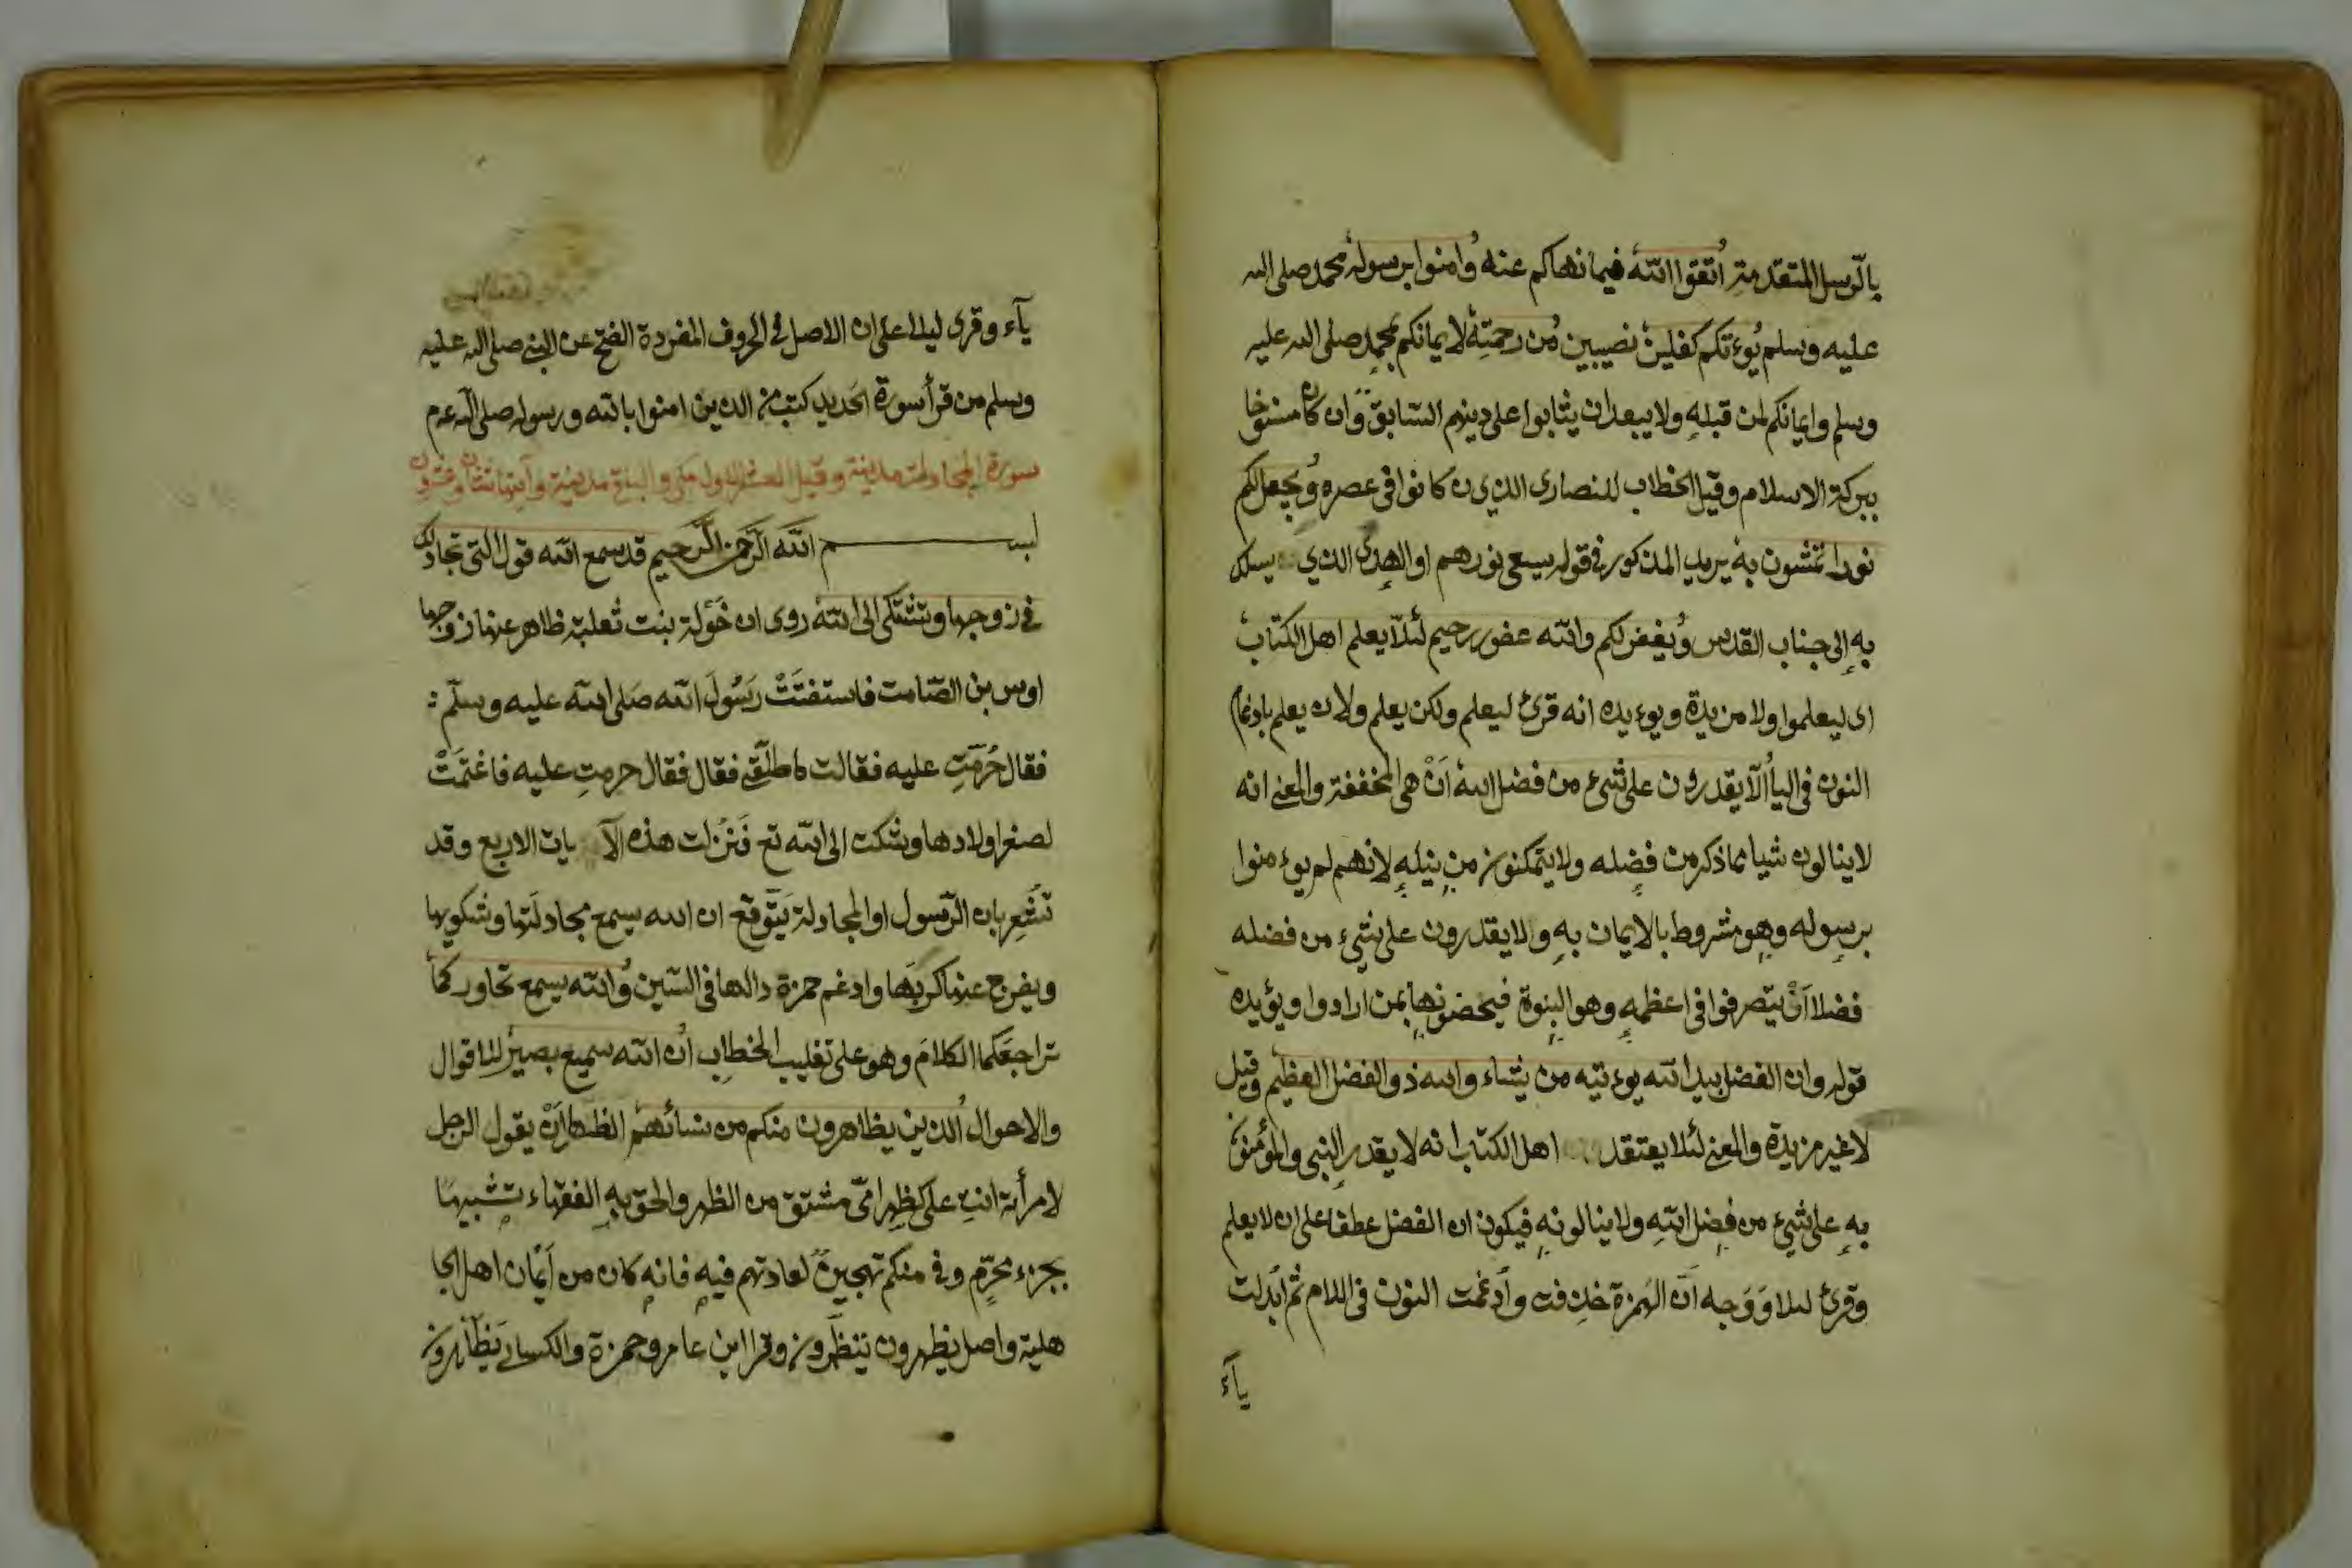 بالرّسل المتقدمة اتقوا الله فيما نهاكم عنه وامنوا برسوله محمد صلى الله
عليه وسلم يوءتكم كفلين نصيبين من رحمته لايمانكم بمحمد صلى الله عليه
وسلم وايمانكم لمن قبله ولا يبعد ان يثابوا على دينهم السّابق وان كان منسوخا
ببركة الاسلام وقيل الخطاب للنصارى الذين كانوا فى عصره ويجعل لكم
نورا تمشون به يريد المذكور فى قوله يسعى نورهم او الهدى الذي يسلك
به إلى جناب القدس ويغفر لكم والله غفور رحيم لئلّا يعلم اهل الكتاب
اى ليعلموا ولا مزيدة ويوءيده انه قرئ ليعلم ولكن يعلم ولان يعلم بادغام
النون فى اليأ ألّا يقدرون على شىء من فضل الله أنْ هى المخففة والمعنى انه
لا ينالون شيا مما ذكر من فضله ولا يتمكنون من نيله لانهم لم يوءمنوا
برسوله وهو مشروط بالايمان به ولا يقدرون على شىء من فضله
فضلا أنْ يتصرفوا فى اعظمه وهو النبوة فيخصونها بمن ارادوا ويؤيده
قوله وان الفضل بيد الله يوءتيه من يشاء والله ذو الفضل العظيم وقيل
لا غير مزيدة والمعنى لئلا يعتقد اهل الكتاب انه لا يقدر النبى والمؤمنون
به على شىء من فضل الله ولا ينالونه فيكون ان الفضل عطفا على ان لا يعلم
وقرئ ليلا ووجهه أنّ الهمزة حذفت وأدغمت النون فى اللام ثم ابدلت
يآء
يآء وقرى ليلا على ان الاصل فى الحروف المفردة الفتح عن النبى صلى الله عليه
وسلم من قرأ سورة الحديد كتب من الذين امنوا بالله ورسوله صلى الله عم
سورة المجادلة مدينة وقيل العشر الاول مكى والباقى مدنية وآيها ثنتان وعشرون
بسم الله الرّحمن الرّحيم قد سمع الله قول التى تجادلك
فى زوجها وتشتكى الى الله روى ان خَوْلة بنت ثعلبة ظاهر عنها زوجها
اوس بن الصّامت فاستفتَتْ رَسُولَ الله صَلى الله عليه وسلّم :
فقال حُرّمتِ عليه فقالت ما طلّقنى فقال فقال حرمتِ عليه فاغتمَتْ
لصغر اولادها وشكت الى الله تع فَنَزلت هذه الآيات الاربع وقد
تشعِر بان الرّسول او المجادلة يتوقع ان الله يسمع مجادلَتها وشكويها
ويفرج عنها كربَها وادغم حمزة دالها فى السّين والله يسمع تحاوركما
تراجعكما الكلامَ وهو على تغليب الخطاب ان الله سميع بصير للاقوال
والاحوال الذين يظاهرون منكم من نسائهم الظهار أنْ يقول الرجل
لامرأته انتِ على كظهر امّى مشتق من الظهر والحق به الفقهاء تشبيها
بجزء محرّم وفى منكم تهجين لعادتهم فيه فانه كان من أَيْمان اهل الجا
هلية واصل يظهرون يتظهّرون وقرا ابن عامر وحمزة والكسائى يَظّاهرون